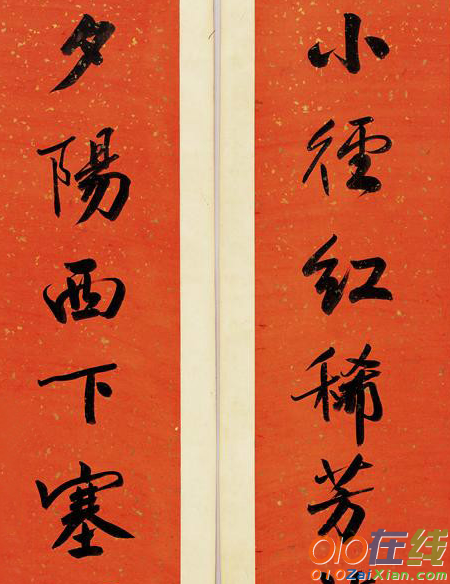 小徑红稀芳
夕陽西下塞
010在线
ZaiXian.com